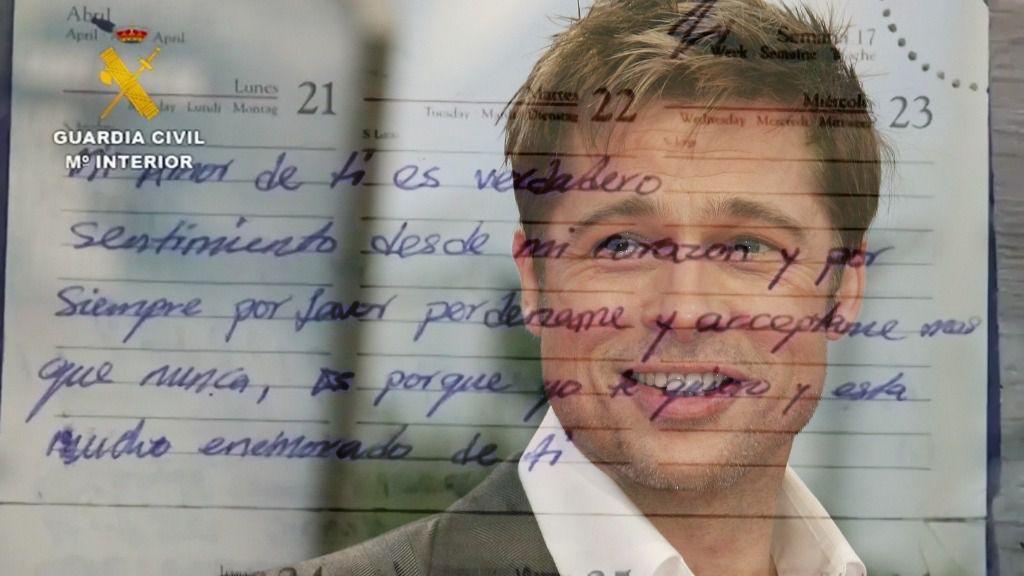 Abril
April April
Semana 17
Week Semaine Woche
Lunes 21
Lundi Montag
Martes 22
Tuesday Mardi Dienstag
Miércoles 23
Wednesday Mercredi Mittwoch
GUARDIA CIVIL
Mº INTERIOR
Mi Amor de ti es verdadero
Sentimiento desde mi corazon y por
Siempre por favor perdename y acceptame mas
que nunca, porque yo te quiero y esta
mucho enemorado de ti